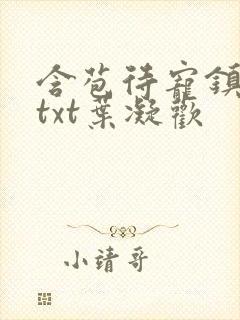 含苞待寵鎮
txt葉凝歡
小靖哥